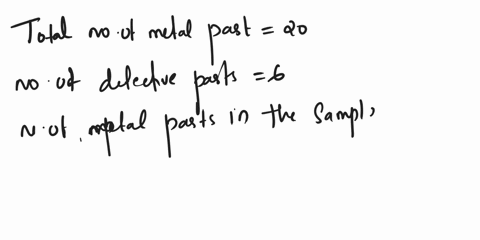 Total no.of metal past = 20
no.of defective parts = 6
N.of metal parts in the Sampl,